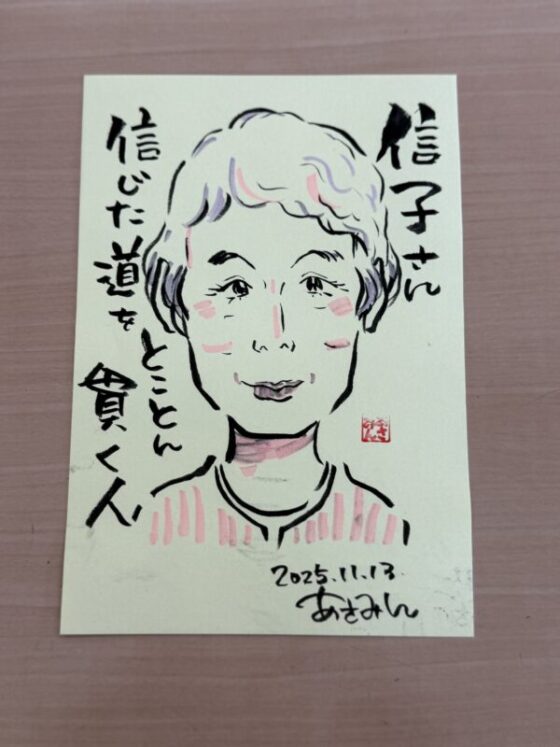 信子さん
信じた道を
とことん
貫く人
2025.11.13.
あさみん